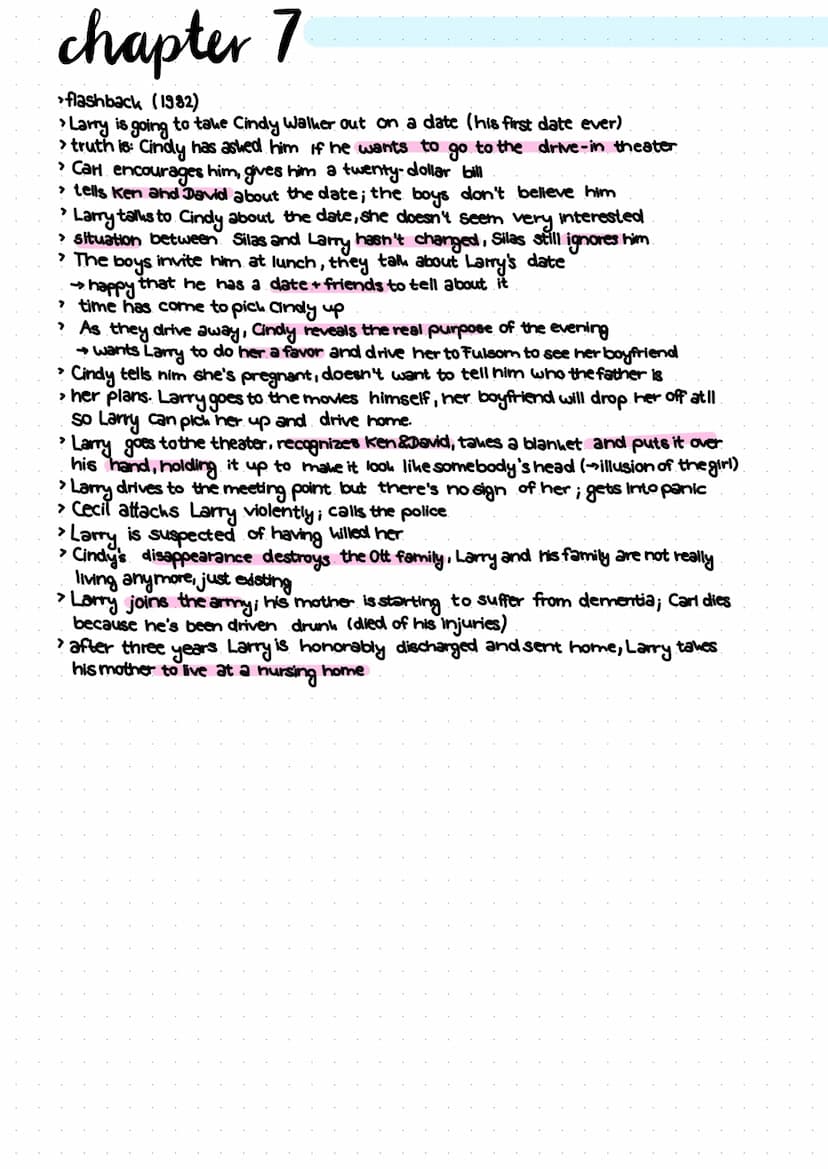 chapter 7
>flashback (1982)
> Larry is going to take Cindy Walker out on a date (his first date ever)
> truth is: Cindy has asked him if he wants to go to the drive-in theater
> Carl encourages him, gives him a twenty-dollar bill
> tells Ken and David about the date; the boys don't believe him
> Larry talks to Cindy about the date, she doesn't seem very interested
> situation between Silas and Larry hasn't changed, Silas still ignores him
> The boys invite him at lunch, they talk about Larry's date
→ happy that he has a date + friends to tell about it
> time has come to pick Cindy up
> As they drive away, Cindy reveals the real purpose of the evening
→ wants Larry to do her a favor and drive her to Fulsom to see her boyfriend
> Cindy tells him she's pregnant, doesn't want to tell him who the father is
> her plans. Larry goes to the movies himself, her boyfriend will drop her off at 11
so Larry can pick her up and drive home.
> Larry goes to the theater, recognizes Ken & David, takes a blanket and puts it over
his hand, holding it up to make it look like somebody's head (→ illusion of the girl)
> Larry drives to the meeting point but there's no sign of her; gets into panic
> Cecil attacks Larry violently; calls the police
> Larry is suspected of having killed her
> Cindy's disappearance destroys the Ott family, Larry and his family are not really
living anymore, just existing
> Larry joins the army; his mother is starting to suffer from dementia; Carl dies
because he's been driven drunk (died of his injuries)
> after three years Larry is honorably discharged and sent home, Larry takes
his mother to live at a nursing home